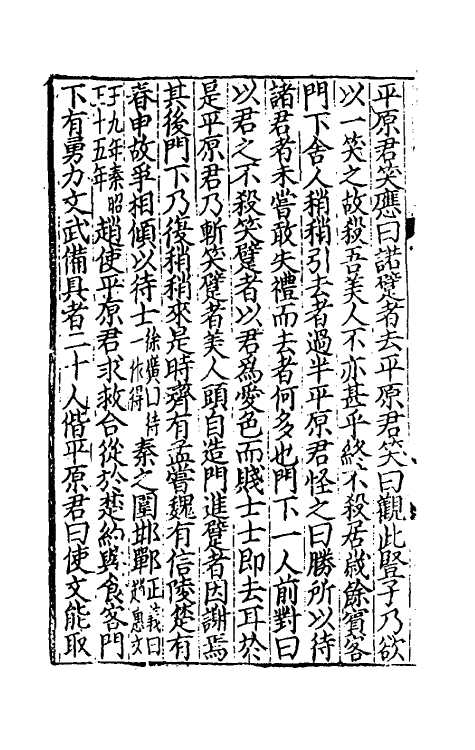 平原君笑應曰諾躄者去平原君笑曰觀此竪子乃欲
以一笑之故殺吾美人不亦甚乎終不殺居歲餘賓客
門下舍人稍稍引去者過半平原君怪之曰勝所以待
諸君者未嘗敢失禮而去者何多也門下一人前對曰
以君之不殺笑躄者以君爲愛色而賤士士即去耳於
是平原君乃斬笑躄者美人頭自造門進躄者因謝焉
其後門下乃復稍稍來是時齊有孟嘗魏有信陵楚有
春申故爭相傾以待士徐廣曰待一作得秦之圍邯鄲正義曰趙惠文
王九年秦昭王十五年趙使平原君求救合從於楚約與食客門
下有勇力文武備具者二十人偕平原君曰使文能取